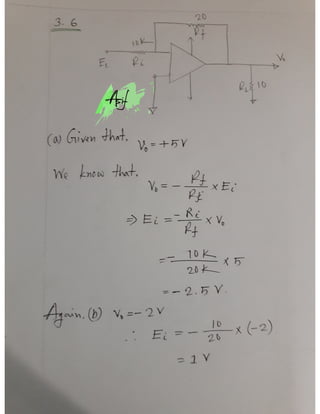 3.6
20
Rf
10K
Ei
Ri
Vo
RL 10
Ans
(a) Given that. Vo = +5V
We know that.
Vo = - Rf/Ri × Ei
⇒ Ei = -Ri/Rf × Vo
= - 10K/20K × 5
= -2.5 V.
Again, (b) Vo = -2V
∴ Ei = - 10/20 × (-2)
= 1 V